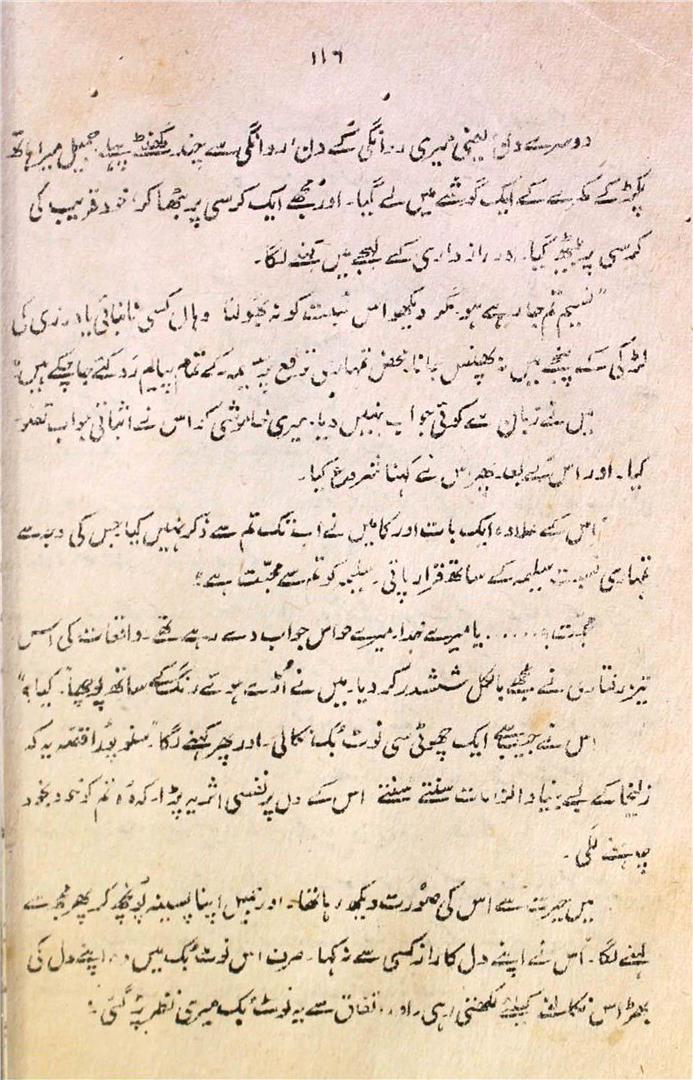 ۱۱۶
دوسرے دن یعنی میری روانگی کے دن، روانگی سے چند گھنٹے پہلے جمیل میرا ہاتھ
پکڑ کے کمرے کے ایک گوشے میں لے گیا۔ اور مجھے ایک کرسی پر بٹھا کر، خود قریب کی
کرسی پر بیٹھ گیا۔ اور راز داری کے لہجے میں کہنے لگا۔
"نسیم تم جا رہے ہو مگر دیکھو اس نسبت کو نہ بھولنا وہاں کسی پادری کی
لڑکی کے پنجے میں نہ پھنس جانا۔ محض تمہاری توقع پر سلیمہ کے تمام پیام رد کئے جا چکے ہیں"
میں نے زبان سے کوئی جواب نہیں دیا۔ میری خاموشی کو اس نے اثباتی جواب تصور
کیا۔ اور اس کے بعد پھر اس نے کہنا شروع کیا۔
"اس کے علاوہ ایک بات اور کا میں نے اب تک تم سے ذکر نہیں کیا جس کی وجہ سے
تمہاری نسبت سلیمہ کے ساتھ قرار پائی۔ سلیمہ کو تم سے محبت ہے"
محبت ؟...... یا میرے خدا۔ میرے حواس جواب دے رہے تھے۔ واقعات کی اس
تیز رفتاری نے مجھے بالکل ششدر کر دیا۔ میں نے اُڑے ہوئے رنگ کے ساتھ پوچھا۔ "کیا؟"
اس نے جیب سے ایک چھوٹی سی نوٹ بک نکالی۔ اور پھر کہنے لگا۔ "سنو پورا قصّہ یہ کہ
زلیخا کے بے بنیاد الزامات سنتے سنتے اس کے دل پر نفسی اثر یہ پڑا۔ کہ وہ تم کو خود بخود
چاہنے لگی۔
میں حیرت سے اس کی صورت دیکھ رہا تھا۔ اور جمیل اپنا پسینہ پونچھ کر پھر مجھ سے
کہنے لگا۔ "اس نے اپنے دل کا راز کسی سے نہ کہا۔ صرف اس نوٹ بک میں وہ اپنے دل کی
بھڑاس نکالنے کیلئے لکھتی رہی۔ اور اتفاق سے یہ نوٹ بک میری نظر پڑ گئی۔